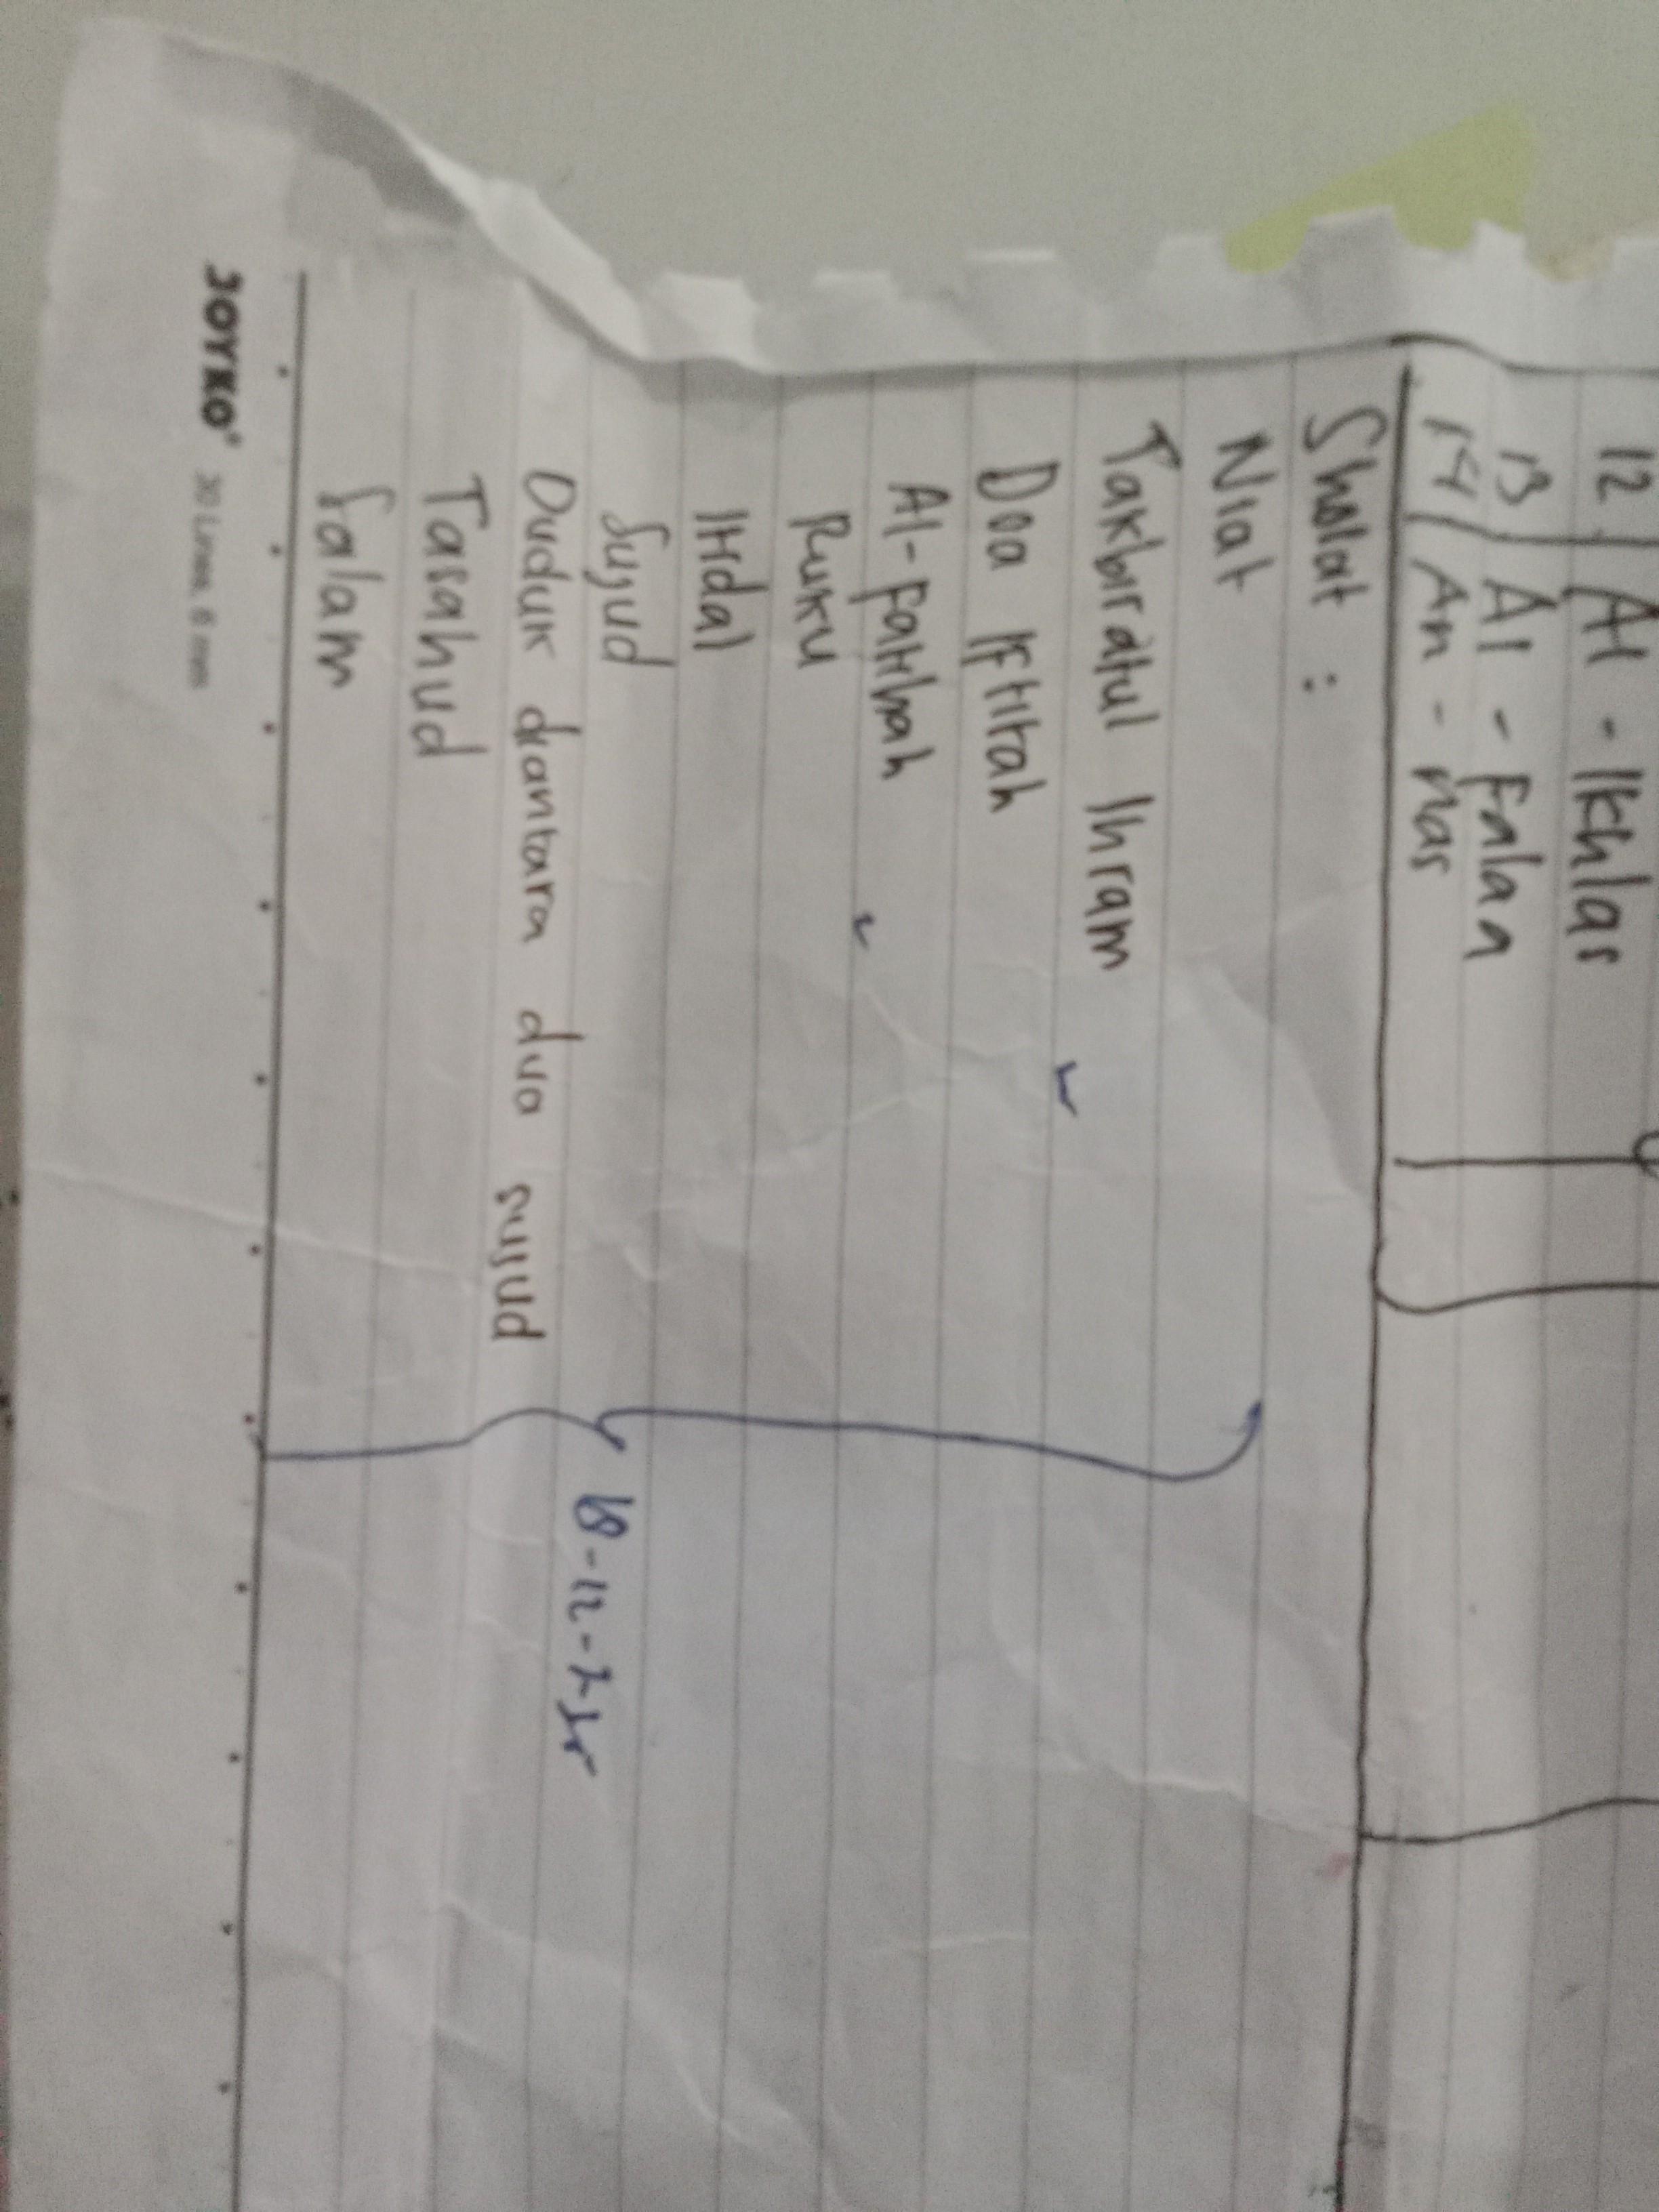 12 / Al - Ikhlas
13 / Al - Falaq
14 / An - nas
Sholat :
Niat
Takbiratul Ihram
Doa Iftitah
Al-Fatihah
Ruku
Itidal
Sujud
Duduk diantara dua sujud
Tasahud
Salam
JOYKO 30 Lines, 6 mm